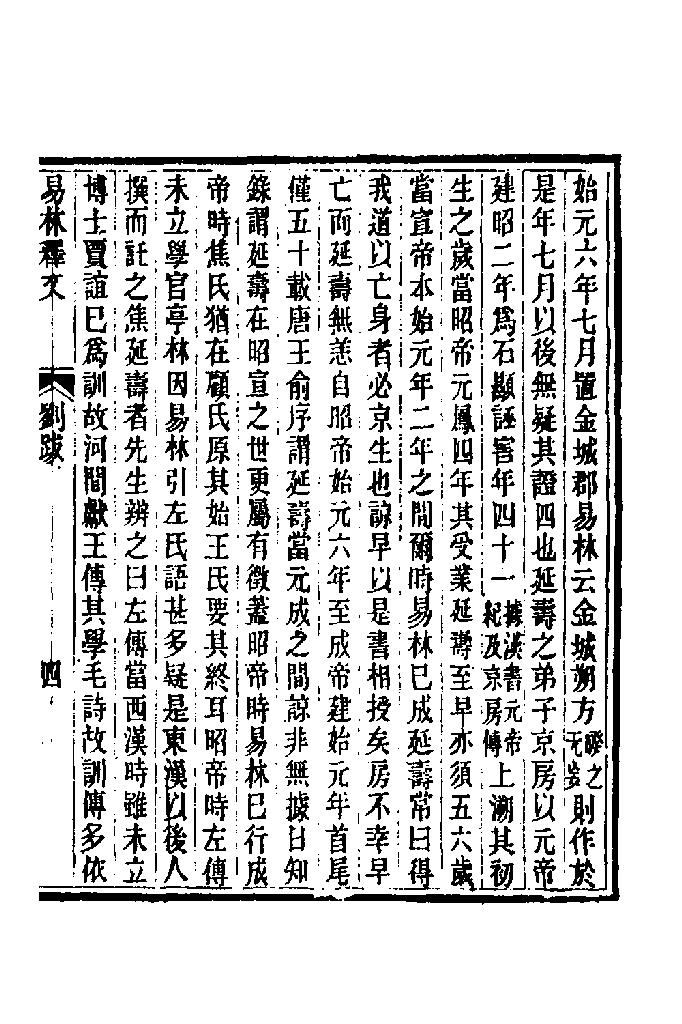 始元六年七月置金城郡易林云金城朔方睽之无妄則作於
是年七月以後無疑其證四也延壽之弟子京房以元帝
建昭二年為石顯誣害年四十一據漢書元帝紀及京房傳上溯其初
生之歲當昭帝元鳳四年其受業延壽至早亦須五六歲
當宣帝本始元年二年之間爾時易林已成延壽常曰得
我道以亡身者必京生也諒早以是書相授矣房不幸早
亡而延壽無恙自昭帝始元六年至成帝建始元年首尾
僅五十載唐王俞序謂延壽當元成之間諒非無據日知
錄謂延壽在昭宣之世更屬有徵蓋昭帝時易林已行成
帝時焦氏猶在顧氏原其始王氏要其終耳昭帝時左傳
未立學官亭林因易林引左氏語甚多疑是東漢以後人
撰而託之焦延壽者先生辨之曰左傳當西漢時雖未立
博士賈誼已為訓故河間獻王傳其學毛詩故訓傳多依
易林釋文 劉跋 四